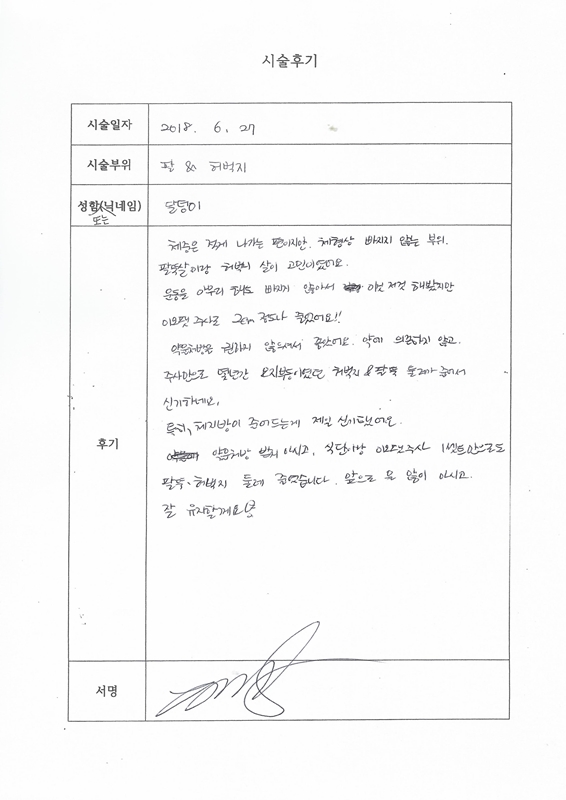 시술후기
시술일자 2018. 6. 27
시술부위 팔 & 허벅지
성함(닉네임) 달팅이
또는
체중은 적게 나가는 편이지만, 체형상 빠지지 않는 부위.
팔뚝살이랑 허벅지 살이 고민이였어요.
운동을 아무리 해도 빠지지 않아서 이것 저것 해봤지만
주사로 줄었어요!!
약물처방은 권하지 않으셔서 좋았어요. 약에 의존하지 않고.
주사만으로 몇년간 요지부동이였던 허벅지 & 팔뚝 둘레가 줄어서
신기하네요.
특히, 체지방이 줄어드는게 제일 신기했어요.
약물처방 받지 아시고, 식단이랑 주사 1셋트만으로도
팔뚝·허벅지 둘레 줄였습니다. 앞으로
잘 유지할게요
후기
서명